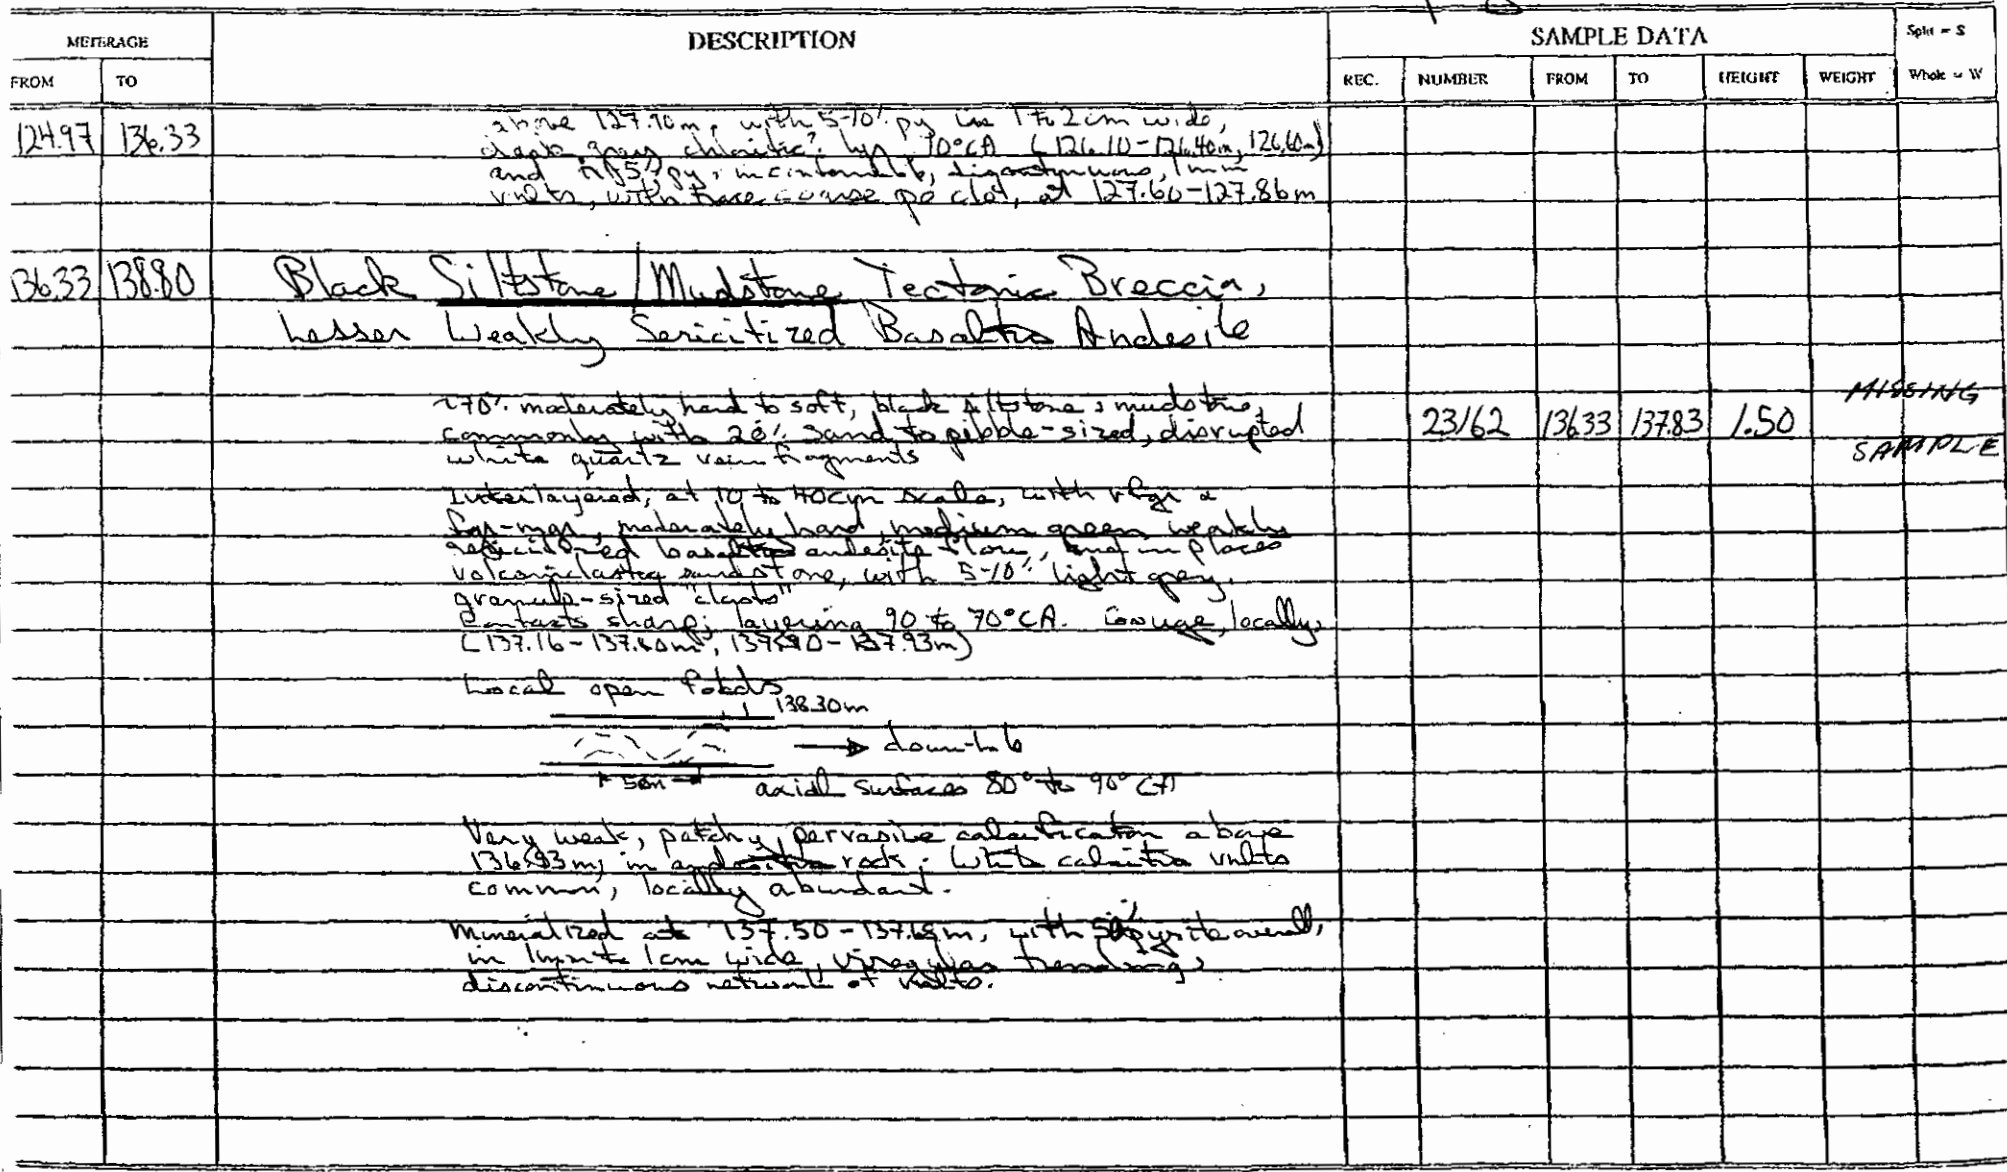 METERAGE
DESCRIPTION
SAMPLE DATA
Split = S
FROM TO
REC. NUMBER FROM TO HEIGHT WEIGHT Whole = W
124.97 136.33 above 127.90m, with 5-10% py in 1 to 2cm wide,
grey chloritic? lyr 70°CA (126.10-126.40m, 126.60m)
and 5% py, in discontinuous, 1mm
vnlts, with trace coarse po clot, at 127.60-127.86m
136.33 138.80 Black Siltstone/Mudstone Tectonic Breccia,
Lesser Weakly Sericitized Basaltic Andesite
~70% moderately hard to soft, black siltstone & mudstone,
commonly with 20% sand to pebble-sized, disrupted
white quartz vein fragments
23162 136.33 137.83 1.50 MISSING
SAMPLE
Interlayered, at 10 to 40cm scale, with vfgr &
fgr-mgr, moderately hard, medium green weakly
sericitized basaltic andesite flow, and in places
volcaniclastic sandstone, with 5-10% light grey,
granule-sized "clasts"
Contacts sharp; layering 90 to 70°CA. Gouge, locally,
(137.16-137.60m, -137.93m)
Local open folds
138.30m
→ down-hole
5cm
axial surfaces 80° to 90° CA
Very weak, patchy, pervasive calcification above
136.93m, in andesitic rock. White calcitic vnlts
common, locally abundant.
Mineralized at 137.50-137.65m, with pyrite overall,
in 1mm to 1cm wide, irregular trending,
discontinuous network of vnlts.